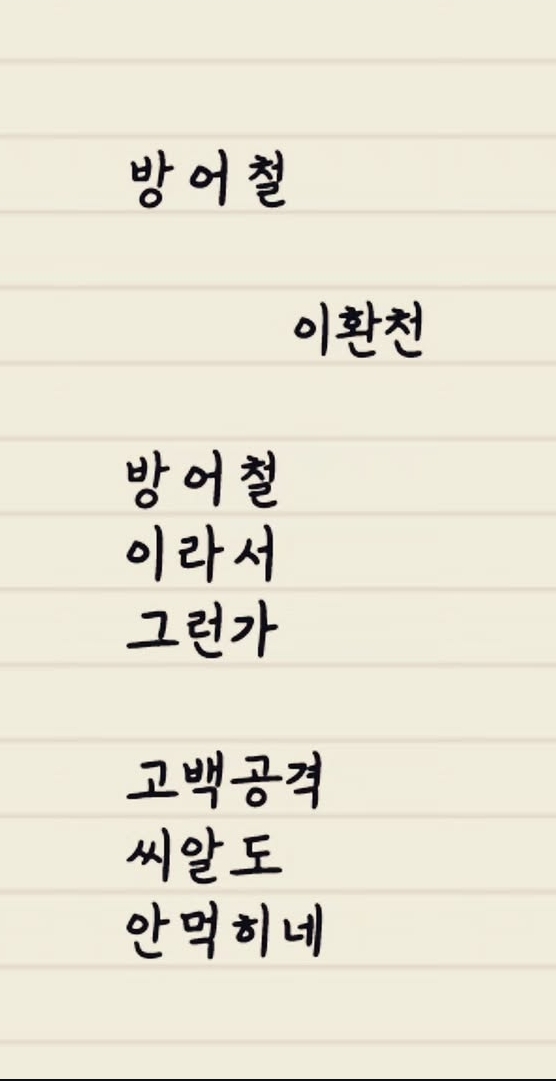 방어철
이환천
방어철
이라서
그런가
고백공격
씨알도
안먹히네